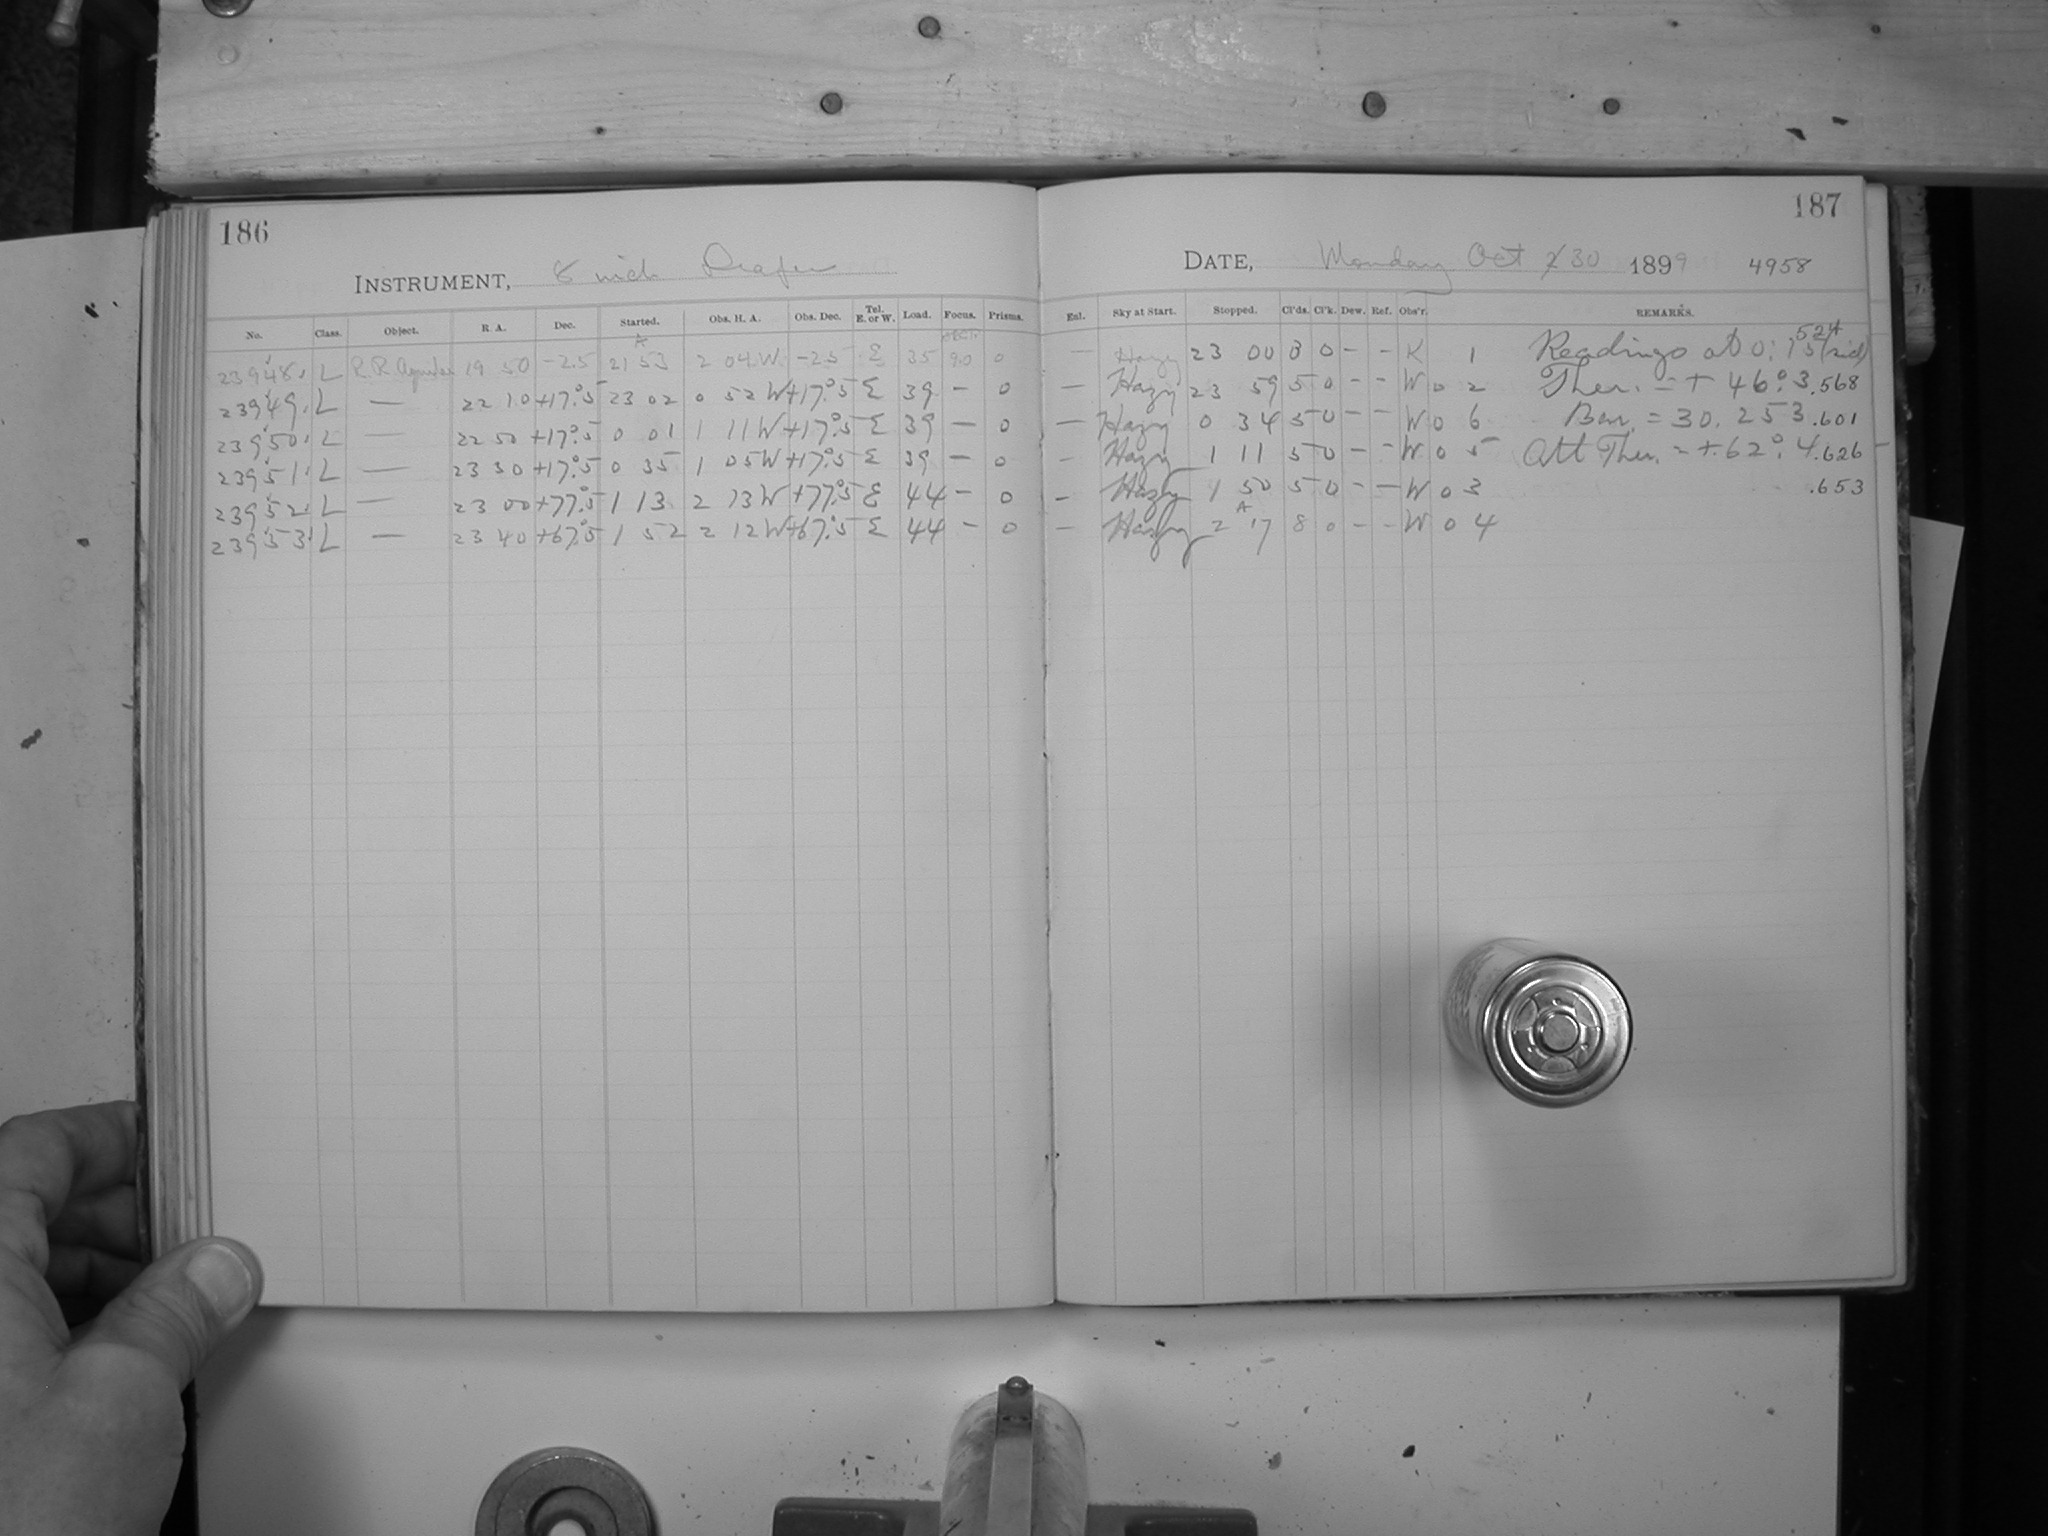 186
INSTRUMENT, 8 inch Draper
No. Class. Object. R. A. Dec. Started. Obs. H. A. Obs. Dec. Tel. E. or W. Load. Focus. Prisms.
23948. L R.R. 19 50 -2.5 21 53 2 04 W -2.5 E 35 9.0 0
23949. L — 22 10 +17°.5 23 02 0 52 W +17°.5 E 39 — 0
23950. L — 22 50 +17°.5 0 01 1 11 W +17°.5 E 39 — 0
23951. L — 23 30 +17°.5 0 35 1 05 W +17°.5 E 39 — 0
23952. L — 23 00 +77°.5 1 13 2 13 W +77°.5 E 44 — 0
23953. L — 23 40 +67°.5 1 52 2 12 W +67°.5 E 44 — 0
187
DATE, Monday Oct 30 1899 4958
Enl. Sky at Start. Stopped. Cl'ds. Cl'k. Dew. Ref. Obs'r. REMARKS.
— Hazy 23 00 8 0 - - K 1 Readings at 0: 15 (sid) .524
— Hazy 23 59 5 0 - - W 0 2 Ther. = + 46°.3 .568
— Hazy 0 34 5 0 - - W 0 6 Bar. = 30.253 .601
— Hazy 1 11 5 0 - - W 0 5 Att Ther. = +62°.4 .626
— Hazy 1 50 5 0 - - W 0 3 .653
— Hazy 2 17 8 0 - - W 0 4